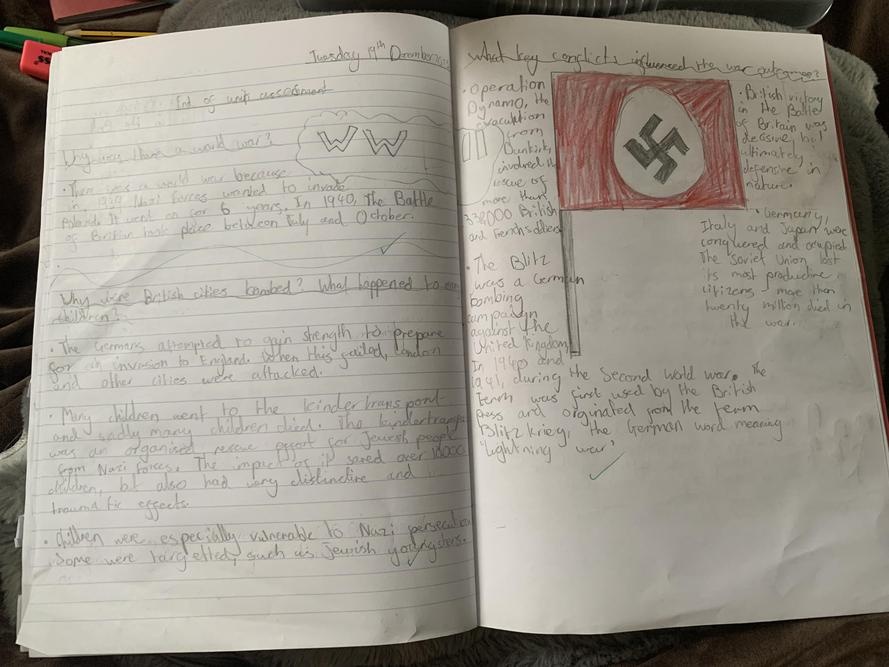 Tuesday 19th December
End of unit assessment
Why was there a world war?
WW
II
• There was a world war because
in 1939 Nazi forces wanted to invade
Poland. It went on for 6 years. In 1940, The Battle
of Britain took place between July and October.
Why were British cities bombed? What happened to
children?
• The Germans attempted to gain strength to prepare
for an invasion to England. When this failed, London
and other cities were attacked.
• Many children went to the kindertransport
and sadly many children died. The kindertransport
was an organised rescue effort for Jewish people
from Nazi forces. The impact of it saved over 10000
children, but also had very distinctive and
traumatic effects.
• Children were especially vulnerable to Nazi persecution
Some were targetted, such as Jewish youngsters.
What key conflicts influenced the war outcome?
• Operation
Dynamo, the
evacuation
from
Dunkirk,
involved the
rescue of
more than
338,000 British
and French soldiers
• The Blitz
was a German
bombing
campaign
against the
United Kingdom
In 1940 and
1941, during the Second world war. The
term was first used by the British
Press and originated from the term
Blitzkrieg, the German word meaning
'lightning war'
• British victory
in the Battle
of Britain was
decisive, but
ultimately
defensive in
nature.
• Germany,
Italy and Japan were
conquered and occupied
The Soviet Union lost
its most productive
citizens, more than
twenty million died in
the war.